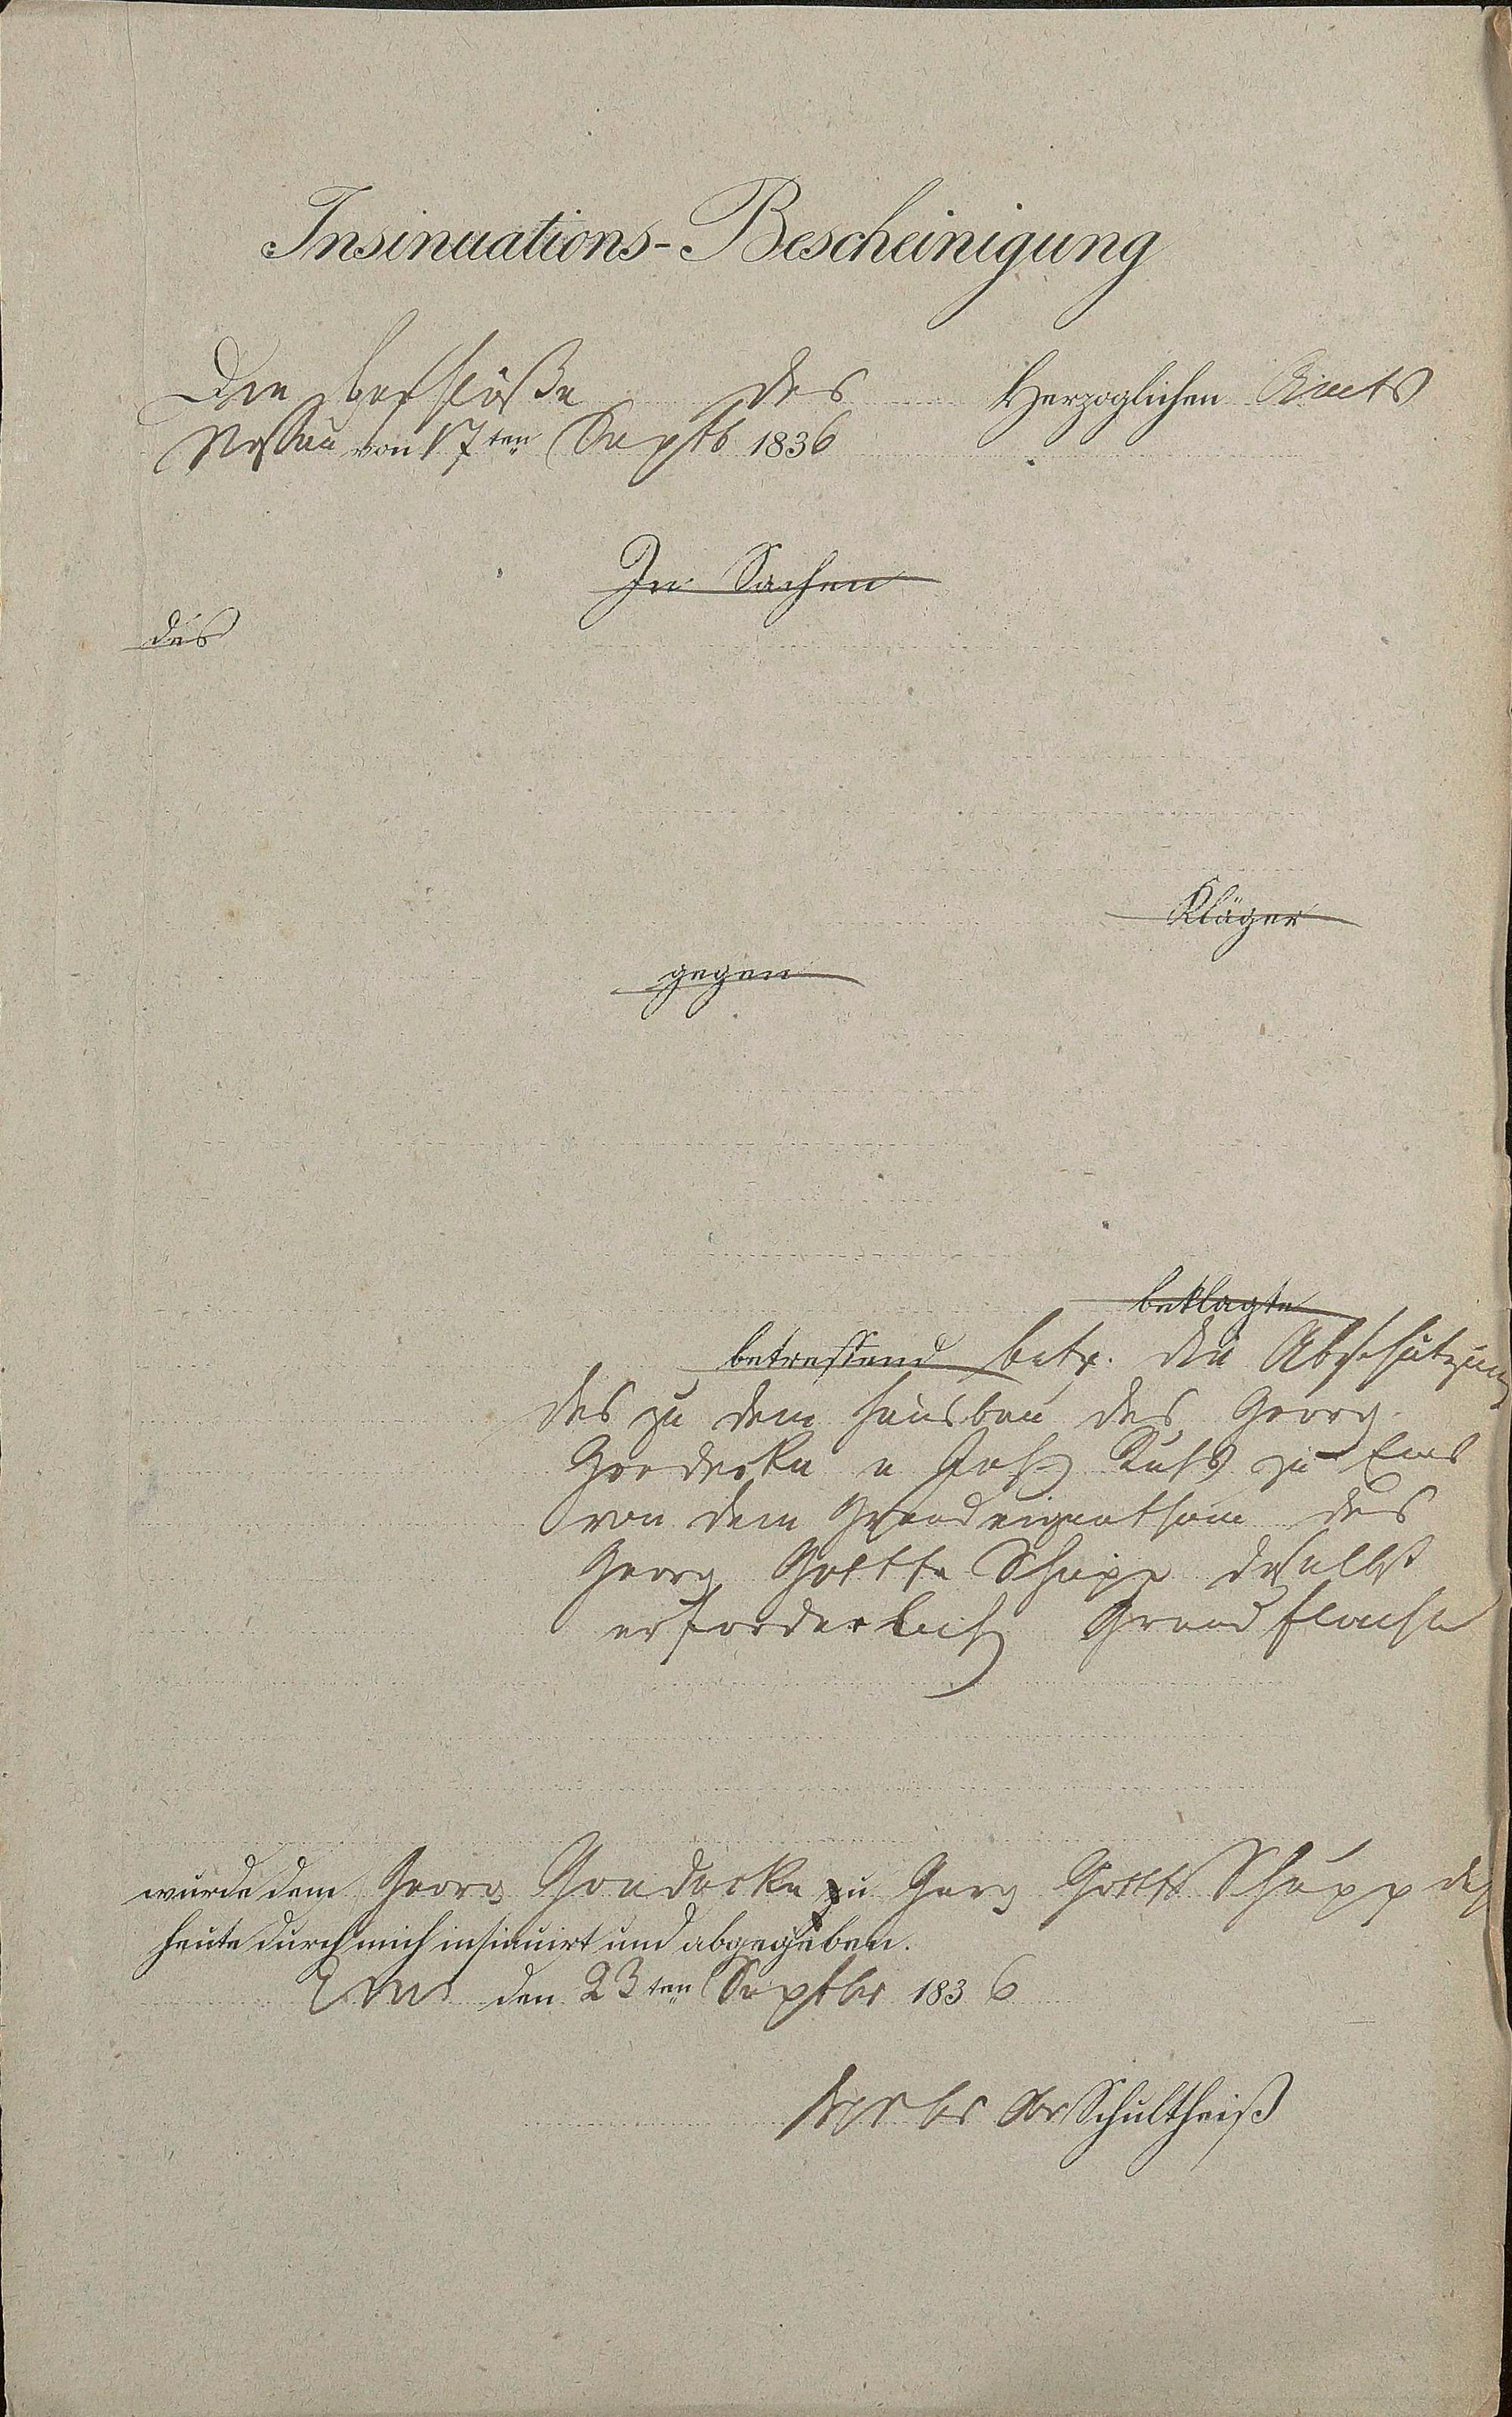 Insinuations-Bescheinigung
Die Beschlüße des Herzoglichen Amts
Nassau von 17ten Septb 1836
In Sachen
des
Kläger
gegen
beklagte
betreffend betr. die Abschätzung
des zu dem Hausbau des Georg
u zu Ems
von dem Grundeigenthum des
Georg Schupp daselbst
erforderlich Grundfläche
wurde dem Georg u Georg Schupp das
heute durch mich insinuirt und abgegeben.
Ems den 23ten Septbr 1836
Schultheiß